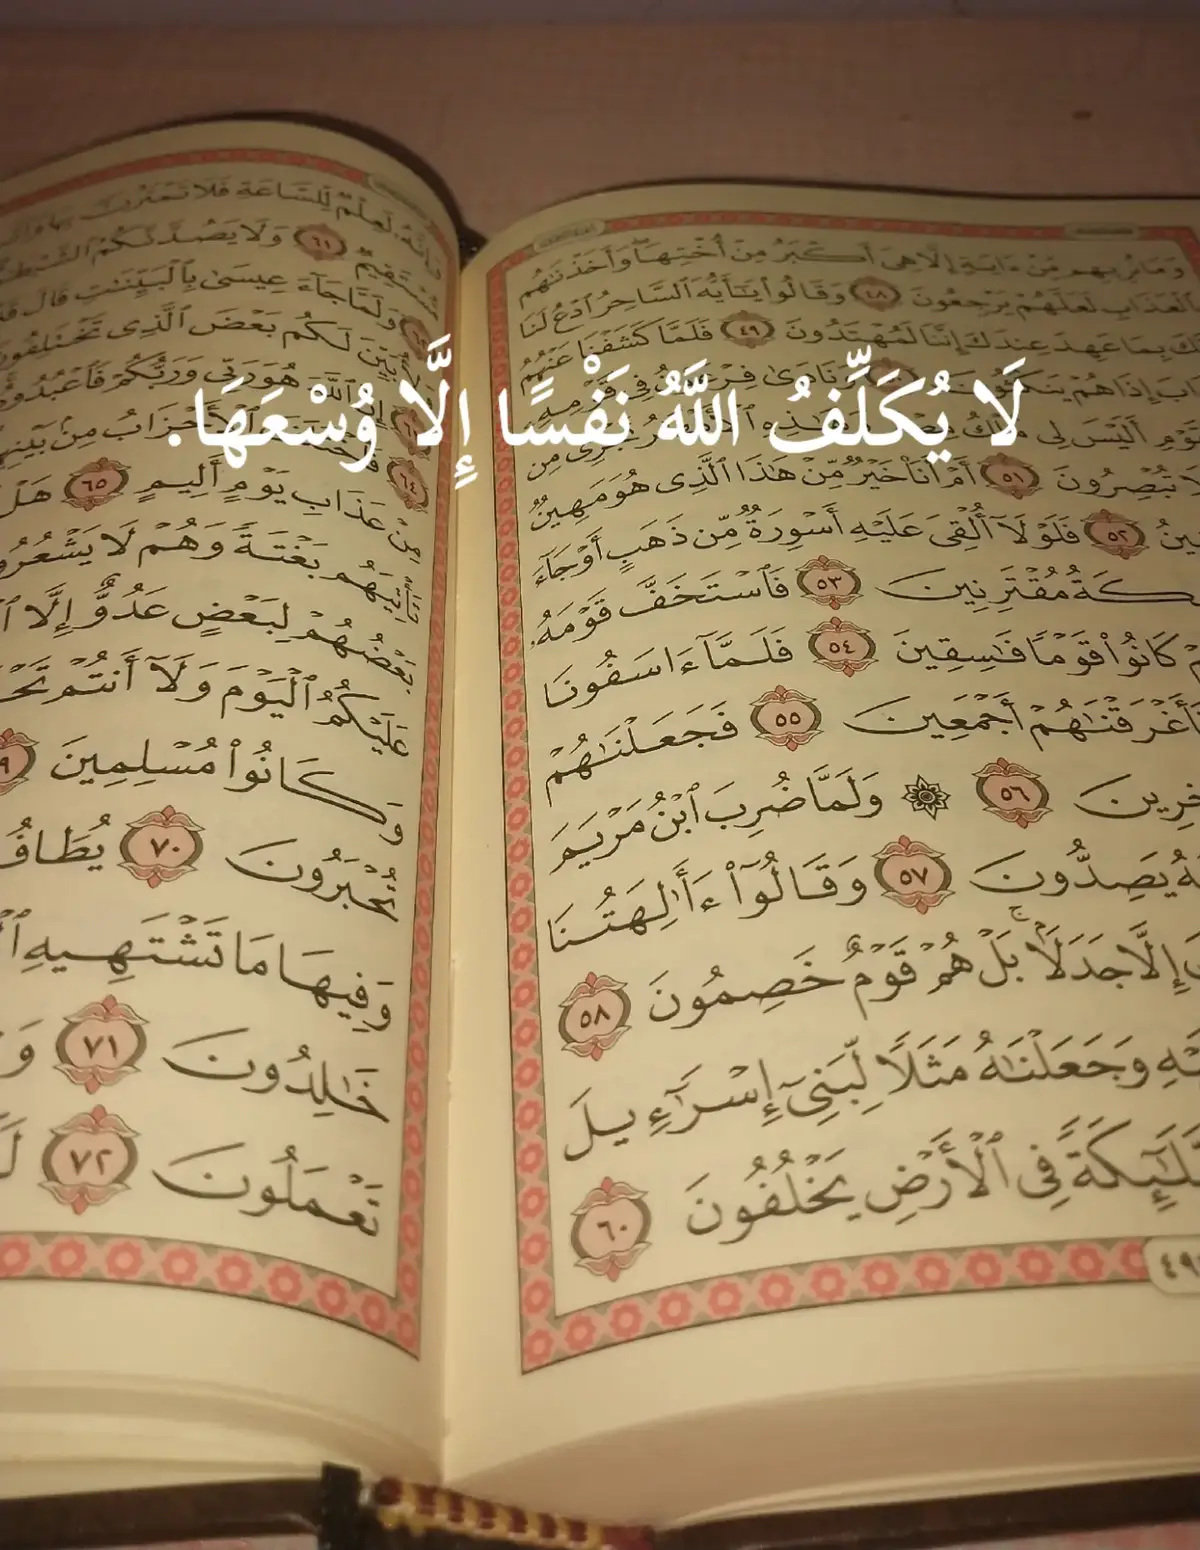 لَا يُكَلِّفُ اللَّهُ نَفْسًا إِلَّا وُسْعَهَا.
وَمَا نُرِيهِم مِّنْ ءَايَةٍ إِلَّا هِىَ أَكْبَرُ مِنْ أُخْتِهَا وَأَخَذْنَٰهُم
لَعَلَّهُمْ يَرْجِعُونَ ٤٨ وَقَالُوا۟ يَٰٓأَيُّهَ ٱلسَّاحِرُ ٱدْعُ لَنَا
بِمَا عَهِدَ عِندَكَ إِنَّنَا لَمُهْتَدُونَ ٤٩ فَلَمَّا كَشَفْنَا عَنْهُمُ
إِذَا هُمْ
أَلَيْسَ لِى
تُبْصِرُونَ ٥١ أَمْ أَنَا۠ خَيْرٌ مِّنْ هَٰذَا ٱلَّذِى هُوَ مَهِينٌ
٥٢ فَلَوْلَآ أُلْقِىَ عَلَيْهِ أَسْوِرَةٌ مِّن ذَهَبٍ أَوْ جَآءَ
مُقْتَرِنِينَ ٥٣ فَٱسْتَخَفَّ قَوْمَهُۥ
كَانُوا۟ قَوْمًا فَٰسِقِينَ ٥٤ فَلَمَّآ ءَاسَفُونَا
أَجْمَعِينَ ٥٥ فَجَعَلْنَٰهُمْ
٥٦ ۞ وَلَمَّا ضُرِبَ ٱبْنُ مَرْيَمَ
يَصِدُّونَ ٥٧ وَقَالُوٓا۟ ءَأَٰلِهَتُنَا
إِلَّا جَدَلًۢا ۚ بَلْ هُمْ قَوْمٌ خَصِمُونَ ٥٨
وَجَعَلْنَٰهُ مَثَلًا لِّبَنِىٓ إِسْرَٰٓءِيلَ
فِى ٱلْأَرْضِ يَخْلُفُونَ ٦٠
وَإِنَّهُۥ لَعِلْمٌ لِّلسَّاعَةِ فَلَا تَمْتَرُنَّ بِهَا
مُّسْتَقِيمٌ ٦١ وَلَا يَصُدَّنَّكُمُ
وَلَمَّا جَآءَ عِيسَىٰ بِٱلْبَيِّنَٰتِ قَالَ
لَكُم بَعْضَ ٱلَّذِى تَخْتَلِفُونَ
هُوَ رَبِّى وَرَبُّكُمْ فَٱعْبُدُوهُ
٦٤ ٱلْأَحْزَابُ مِنۢ
مِنْ عَذَابِ يَوْمٍ أَلِيمٍ ٦٥ هَلْ
بَغْتَةً وَهُمْ لَا يَشْعُرُونَ
بَعْضُهُمْ لِبَعْضٍ عَدُوٌّ إِلَّا
عَلَيْكُمُ ٱلْيَوْمَ وَلَآ أَنتُمْ
وَكَانُوا۟ مُسْلِمِينَ
تُحْبَرُونَ ٧٠ يُطَافُ
وَفِيهَا مَا تَشْتَهِيهِ
خَٰلِدُونَ ٧١
تَعْمَلُونَ ٧٢